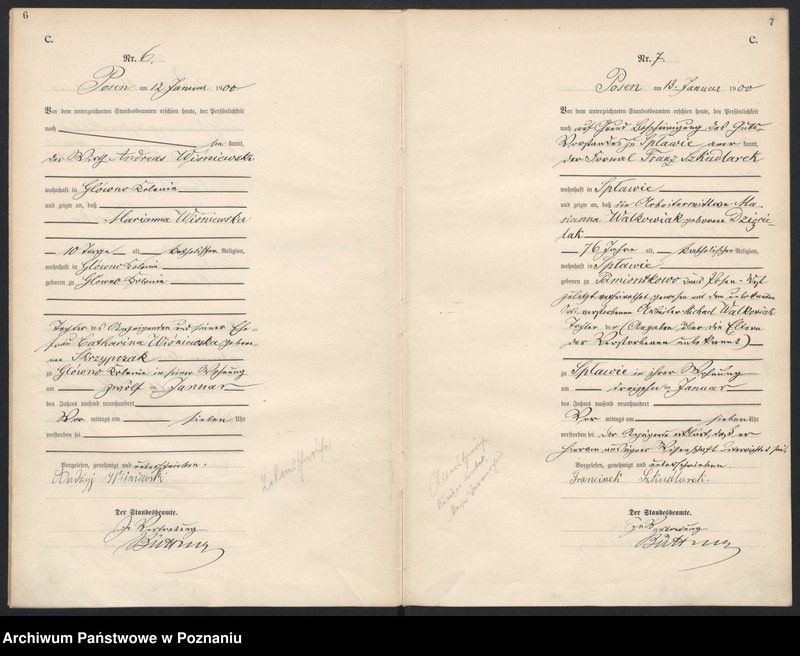 6
C.
Nr. 6.
Posen am 12 Januar 1900
Vor dem unterzeichneten Standesbeamten erschien heute, der Persönlichkeit
nach
be kannt,
der Wirth Andreas Wiśniewski
wohnhaft in Glówno Kolonie
und zeigte an, daß
Marianna Wiśniewska
10 Tage alt, katholischer Religion,
wohnhaft in Glówno Kolonie
geboren zu Glówno Kolonie
Tochter des Anzeigenden und seiner Ehe-
frau Catharina Wiśniewska gebore-
nen Skrzypczak
zu Glówno Kolonie in seiner Wohnung
am zwölf ten Januar
des Jahres tausend neunhundert
Vor mittags um sieben Uhr
verstorben sei
Vorgelesen, genehmigt und unterschrieben.
Andrzej Wiśniewski
Der Standesbeamte.
In Vertretung
Büttner
7
C.
Nr. 7.
Posen am 13. Januar 1900
Vor dem unterzeichneten Standesbeamten erschien heute, der Persönlichkeit
nach auf Grund Bescheinigung des Guts-
Vorstandes zu Splawie aner kannt,
der Fornal Franz Szkudlarek
wohnhaft in Splawie
und zeigte an, daß die Arbeiterwittwe Ma-
rianna Walkowiak geborene Dzięcie-
lak
76 Jahre alt, katholischer Religion,
wohnhaft in Splawie
geboren zu Posen-West
zuletzt verheirathet gewesen mit dem
verstorbenen Arbeiter Michael Walkowiak
Tochter der (Angaben über die Eltern
der Verstorbenen unbekannt)
zu Splawie in ihrer Wohnung
am dreizehn ten Januar
des Jahres tausend neunhundert
Vor mittags um sieben Uhr
verstorben sei. Der Anzeigende erklärt, daß er
hiervon aus eigener Wissenschaft unterrichtet sei.
Vorgelesen, genehmigt und unterschrieben
Franciszek Szkudlarek.
Der Standesbeamte.
In Vertretung
Büttner
Archiwum Państwowe w Poznaniu